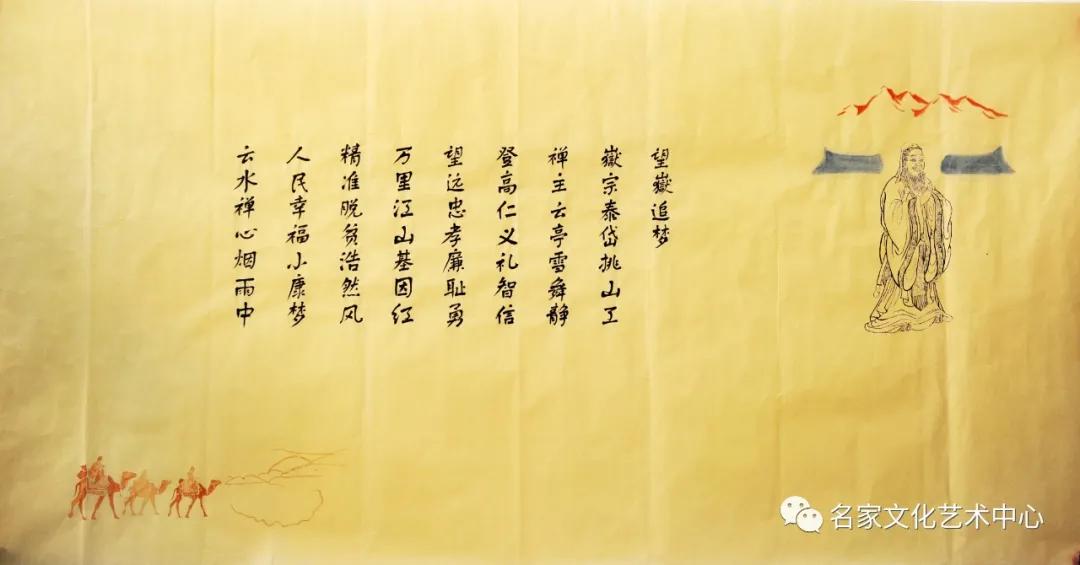 望嶽追梦
嶽宗泰岱挑山工
禅主云亭雪舞静
登高仁义礼智信
望远忠孝廉耻勇
万里江山基因红
精准脱贫浩然风
人民幸福小康梦
云水禅心烟雨中
名家文化艺术中心